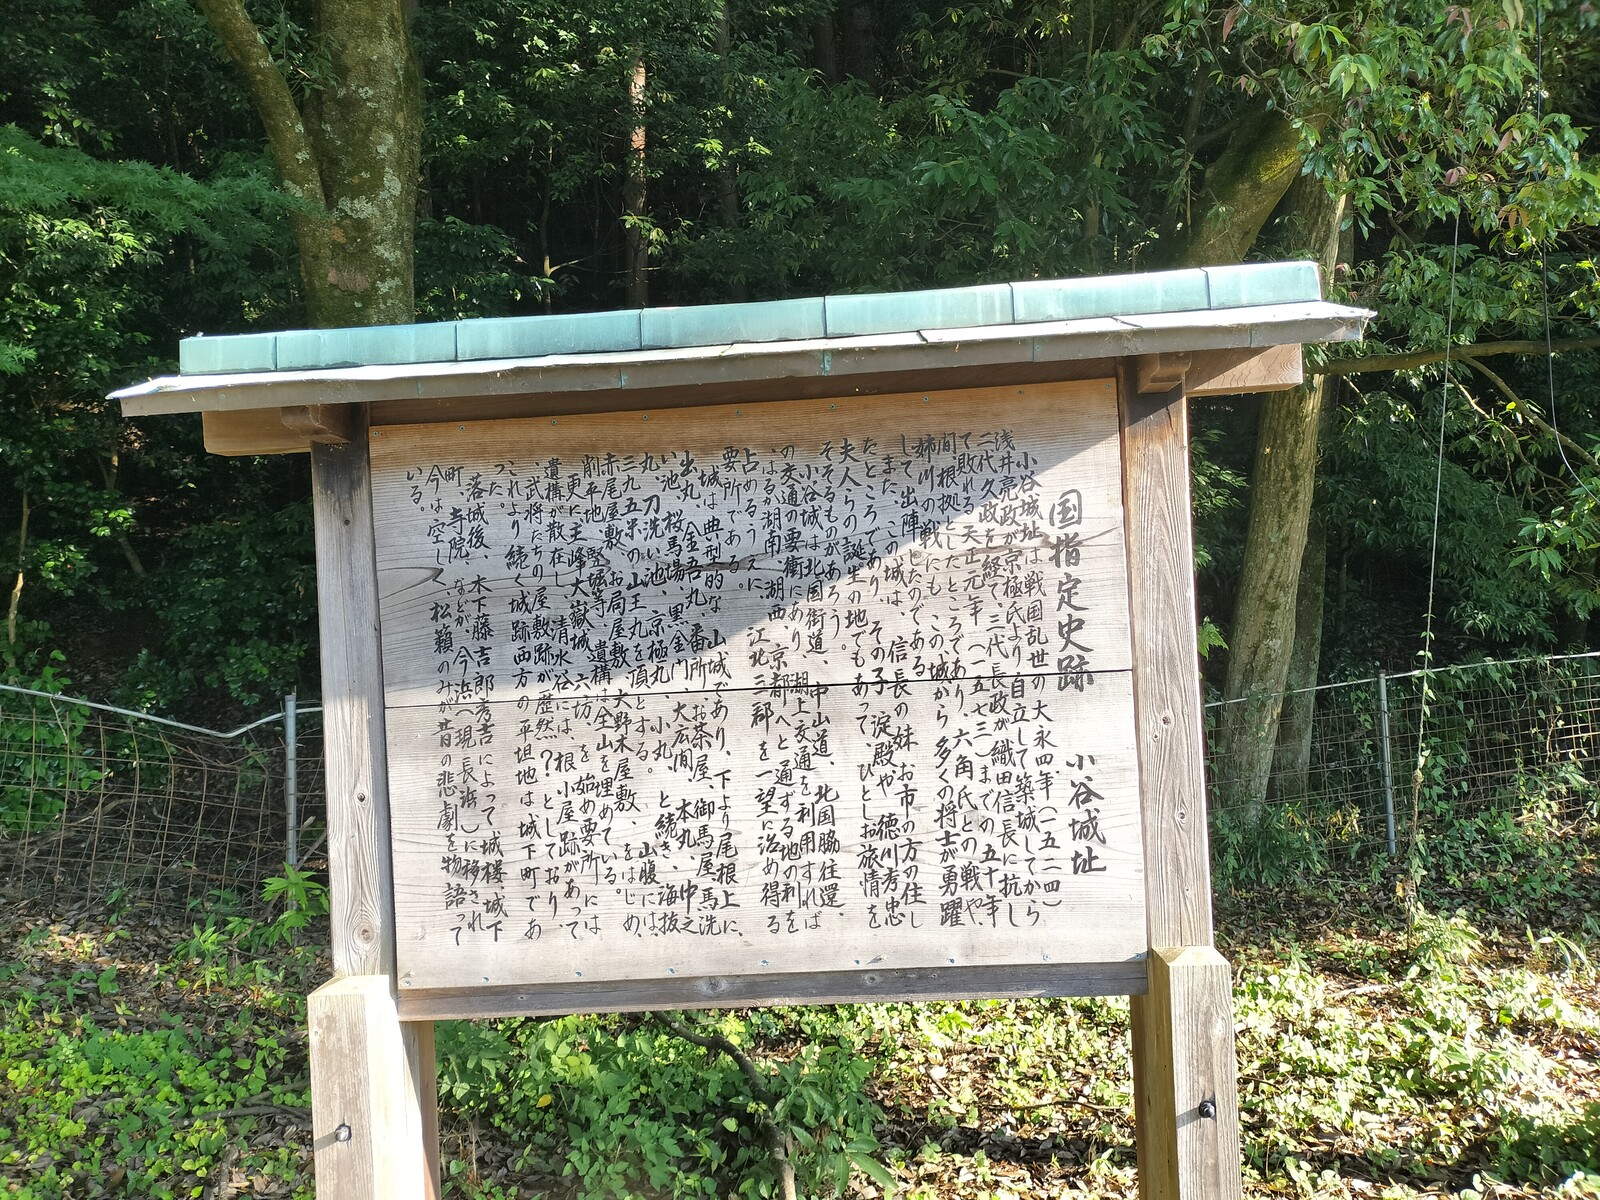 国指定史跡　小谷城址
小谷城址は戦国乱世の大永四年（一五二四）
浅井亮政が京極氏より自立して築城してから
二代久政を経て、三代長政が織田信長に抗し
て敗れる天正元年（一五七三）までの五十年
間、根拠としたところであり、六角氏との戦や、
姉川の戦にも、この城から多くの将士が勇躍
して出陣したのである。
また、この城は、信長の妹お市の方の住し
たところであり、その子、淀殿や徳川秀忠
夫人らの誕生の地でもあって、ひとしお旅情を
そそるものがあろう。
小谷城は北国街道、中山道、北国脇往還、
の交通の要衝にあり、湖上交通を利用すれば
はるか湖南、湖西、京都へと通ずる地の利を
占めるうえに、江北三郡を一望に治め得る
要所である。
城は典型的な山城であり、下より尾根上に、
出丸、金吾丸、番所、お茶屋、御馬屋、馬洗
い池、桜馬場、黒金門、大広間、本丸、中之
丸、刀洗い池、京極丸、小丸、と続き、海抜
三九五米の山王丸を頂とする。山腹には、
赤尾屋敷、お局屋敷、大野木屋敷、をはじめ、
削平地、竪堀等、遺構は全山を埋めている。
更に主峰大嶽城、六坊、を始め要所には
遺構が散在し、清水谷には、根小屋跡があって
、武将たちの屋敷跡が歴然？としており、
これより続く城跡西方の平坦地は城下町であ
った。
落城後、木下藤吉郎秀吉によって城楼、城下
町、寺院、などが、今浜へ（現長浜）に移され
今は空しく、松籟のみが昔の悲劇を物語って
いる。